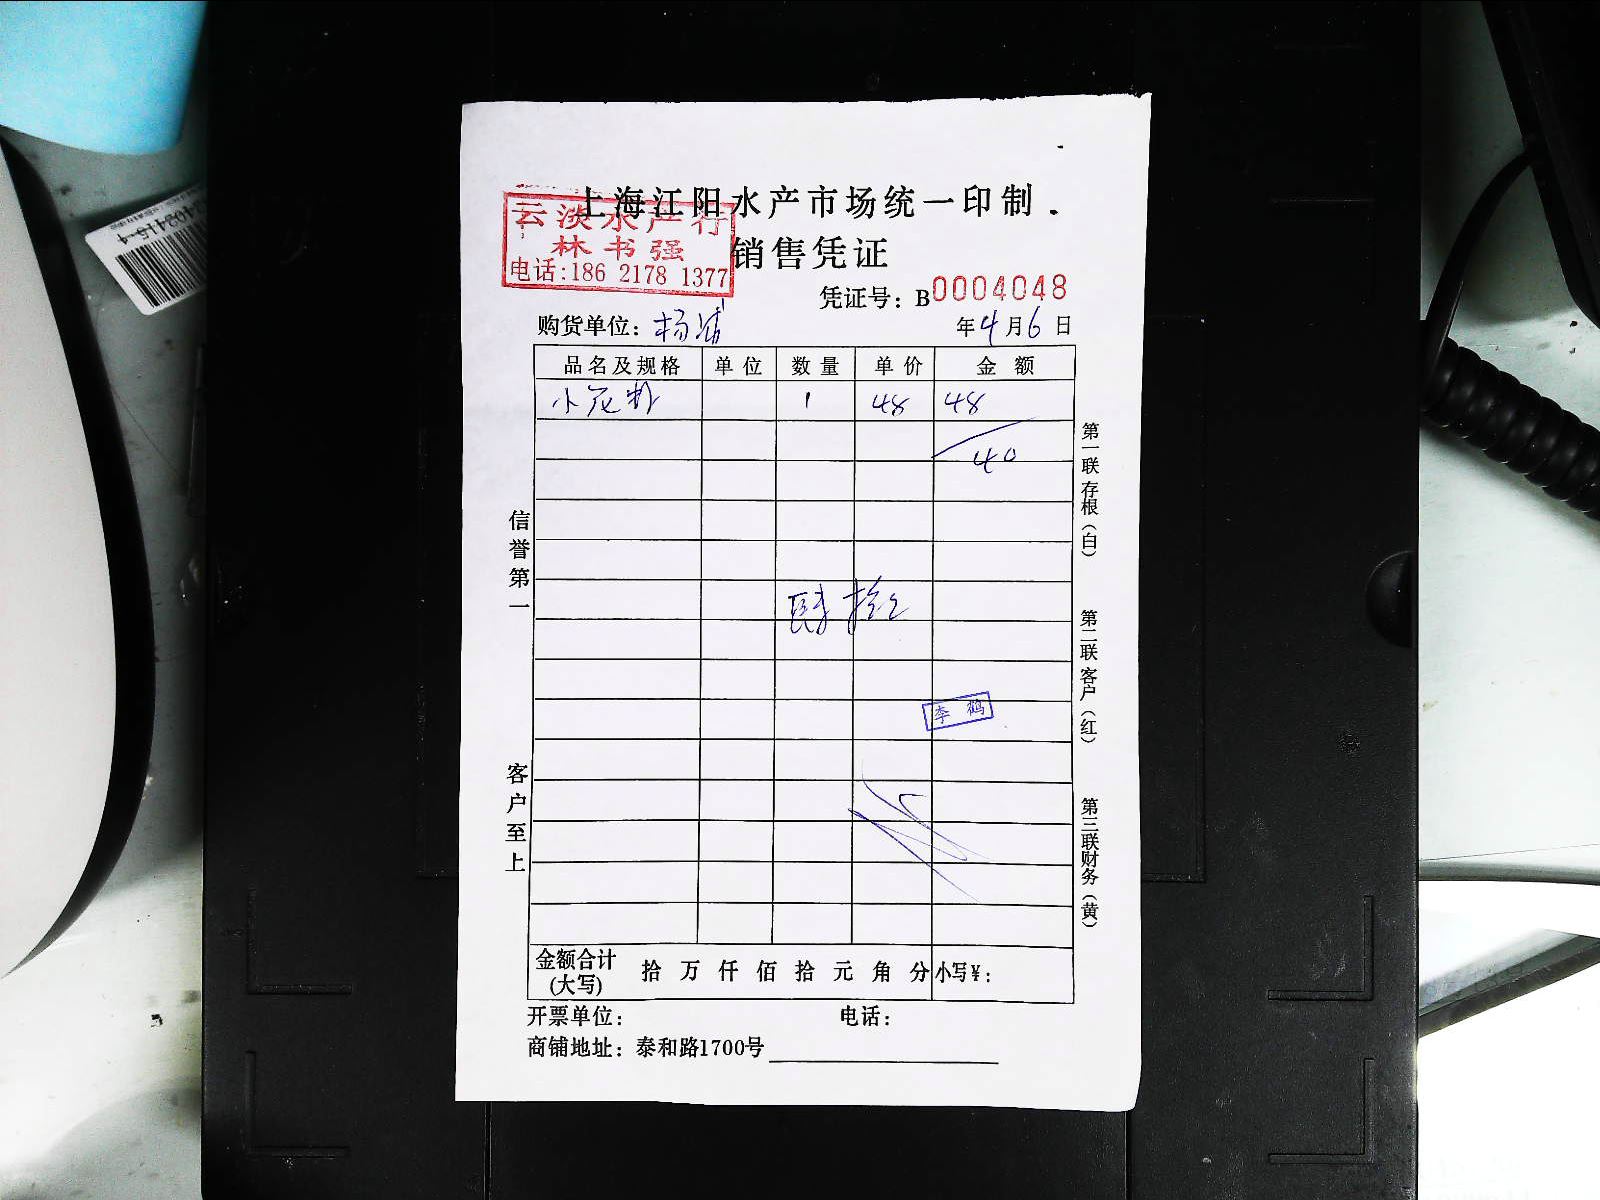 上海江阳水产市场统一印制
云淡水产行
林书强
电话:186 2178 1377
销售凭证
凭证号：B0004048
购货单位：杨浦
年4月6日
品名及规格 单位 数量 单价 金额
小花 1 48 48
40
肆拾元
李鹤
信誉第一
客户至上
第一联存根（白）
第二联客户（红）
第三联财务（黄）
金额合计(大写) 拾 万 仟 佰 拾 元 角 分 小写¥：
开票单位： 电话：
商铺地址：泰和路1700号